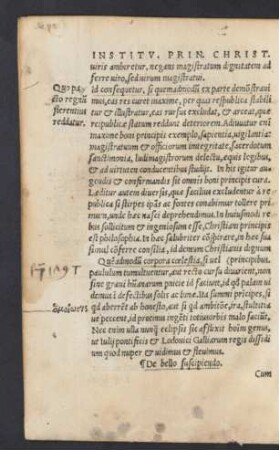 INSTITV. PRIN. CHRIST.
uerit amberetur, negans magistratum dignitatem ad
ferre uiro, sed uirum magistratui.
Quo pa/
cto regnũ
florentius
reddatur.
Id consequetur, si quemadmodũ ex parte demõstraui
mus, eas res curet maxime, per quas respublica stabili
tur & illustratur, eas rursus excludat, & arceat, quæ
reipublicæ statum reddunt deteriorem. Adiuuatur enĩ
maxime boni principis exemplo, sapientia, uigilantia:
magistratuum & officiorum integritate, sacerdotum
sanctimonia, ludimagistrorum delectu, æquis legibus,
& ad uirtutem conducentibus studijs. In his igitur augendis
& confirmandis sit omnis boni principis cura.
Læditur autem diuersis, quæ facilius excludentur à re
publica si stirpes ipsas ac fontes conabimur tollere primum,
unde hæc nasci deprehendimus. In huiusmodi re
bus sollicitum & ingeniosum esse, Christiani principis
est philosophia. In hac salubriter cõspirare, in hæc sua
simul cõferre consilia, id demum Christianis dignum
Quẽadmodũ corpora cœlestia, si uel principibus
paululum tumultuentur, aut recto cursu diuarient, non
sine graui humanarum pernicie id faciunt, id quod palam ui
demus ĩ defectibus solis ac lunæ. Ita summi prĩcipes, si
qd aberrẽt ab honesto, aut si qd ambitiõe, ira, stultitia
ue peccent, id protinus ingẽti totius orbis malo faciũt.
Nec enim ulla unquã eclipsis sic afflixit hoim genus,
ut Iulij pontificis & Lodouici Galliarum regis dissidi
um quod nuper & uidimus & fleuimus.
¶De bello suscipiendo.
Cum